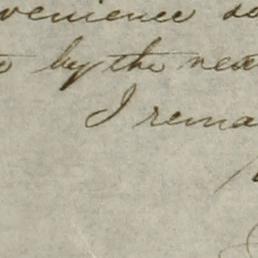 venience so
by the nex
I rema